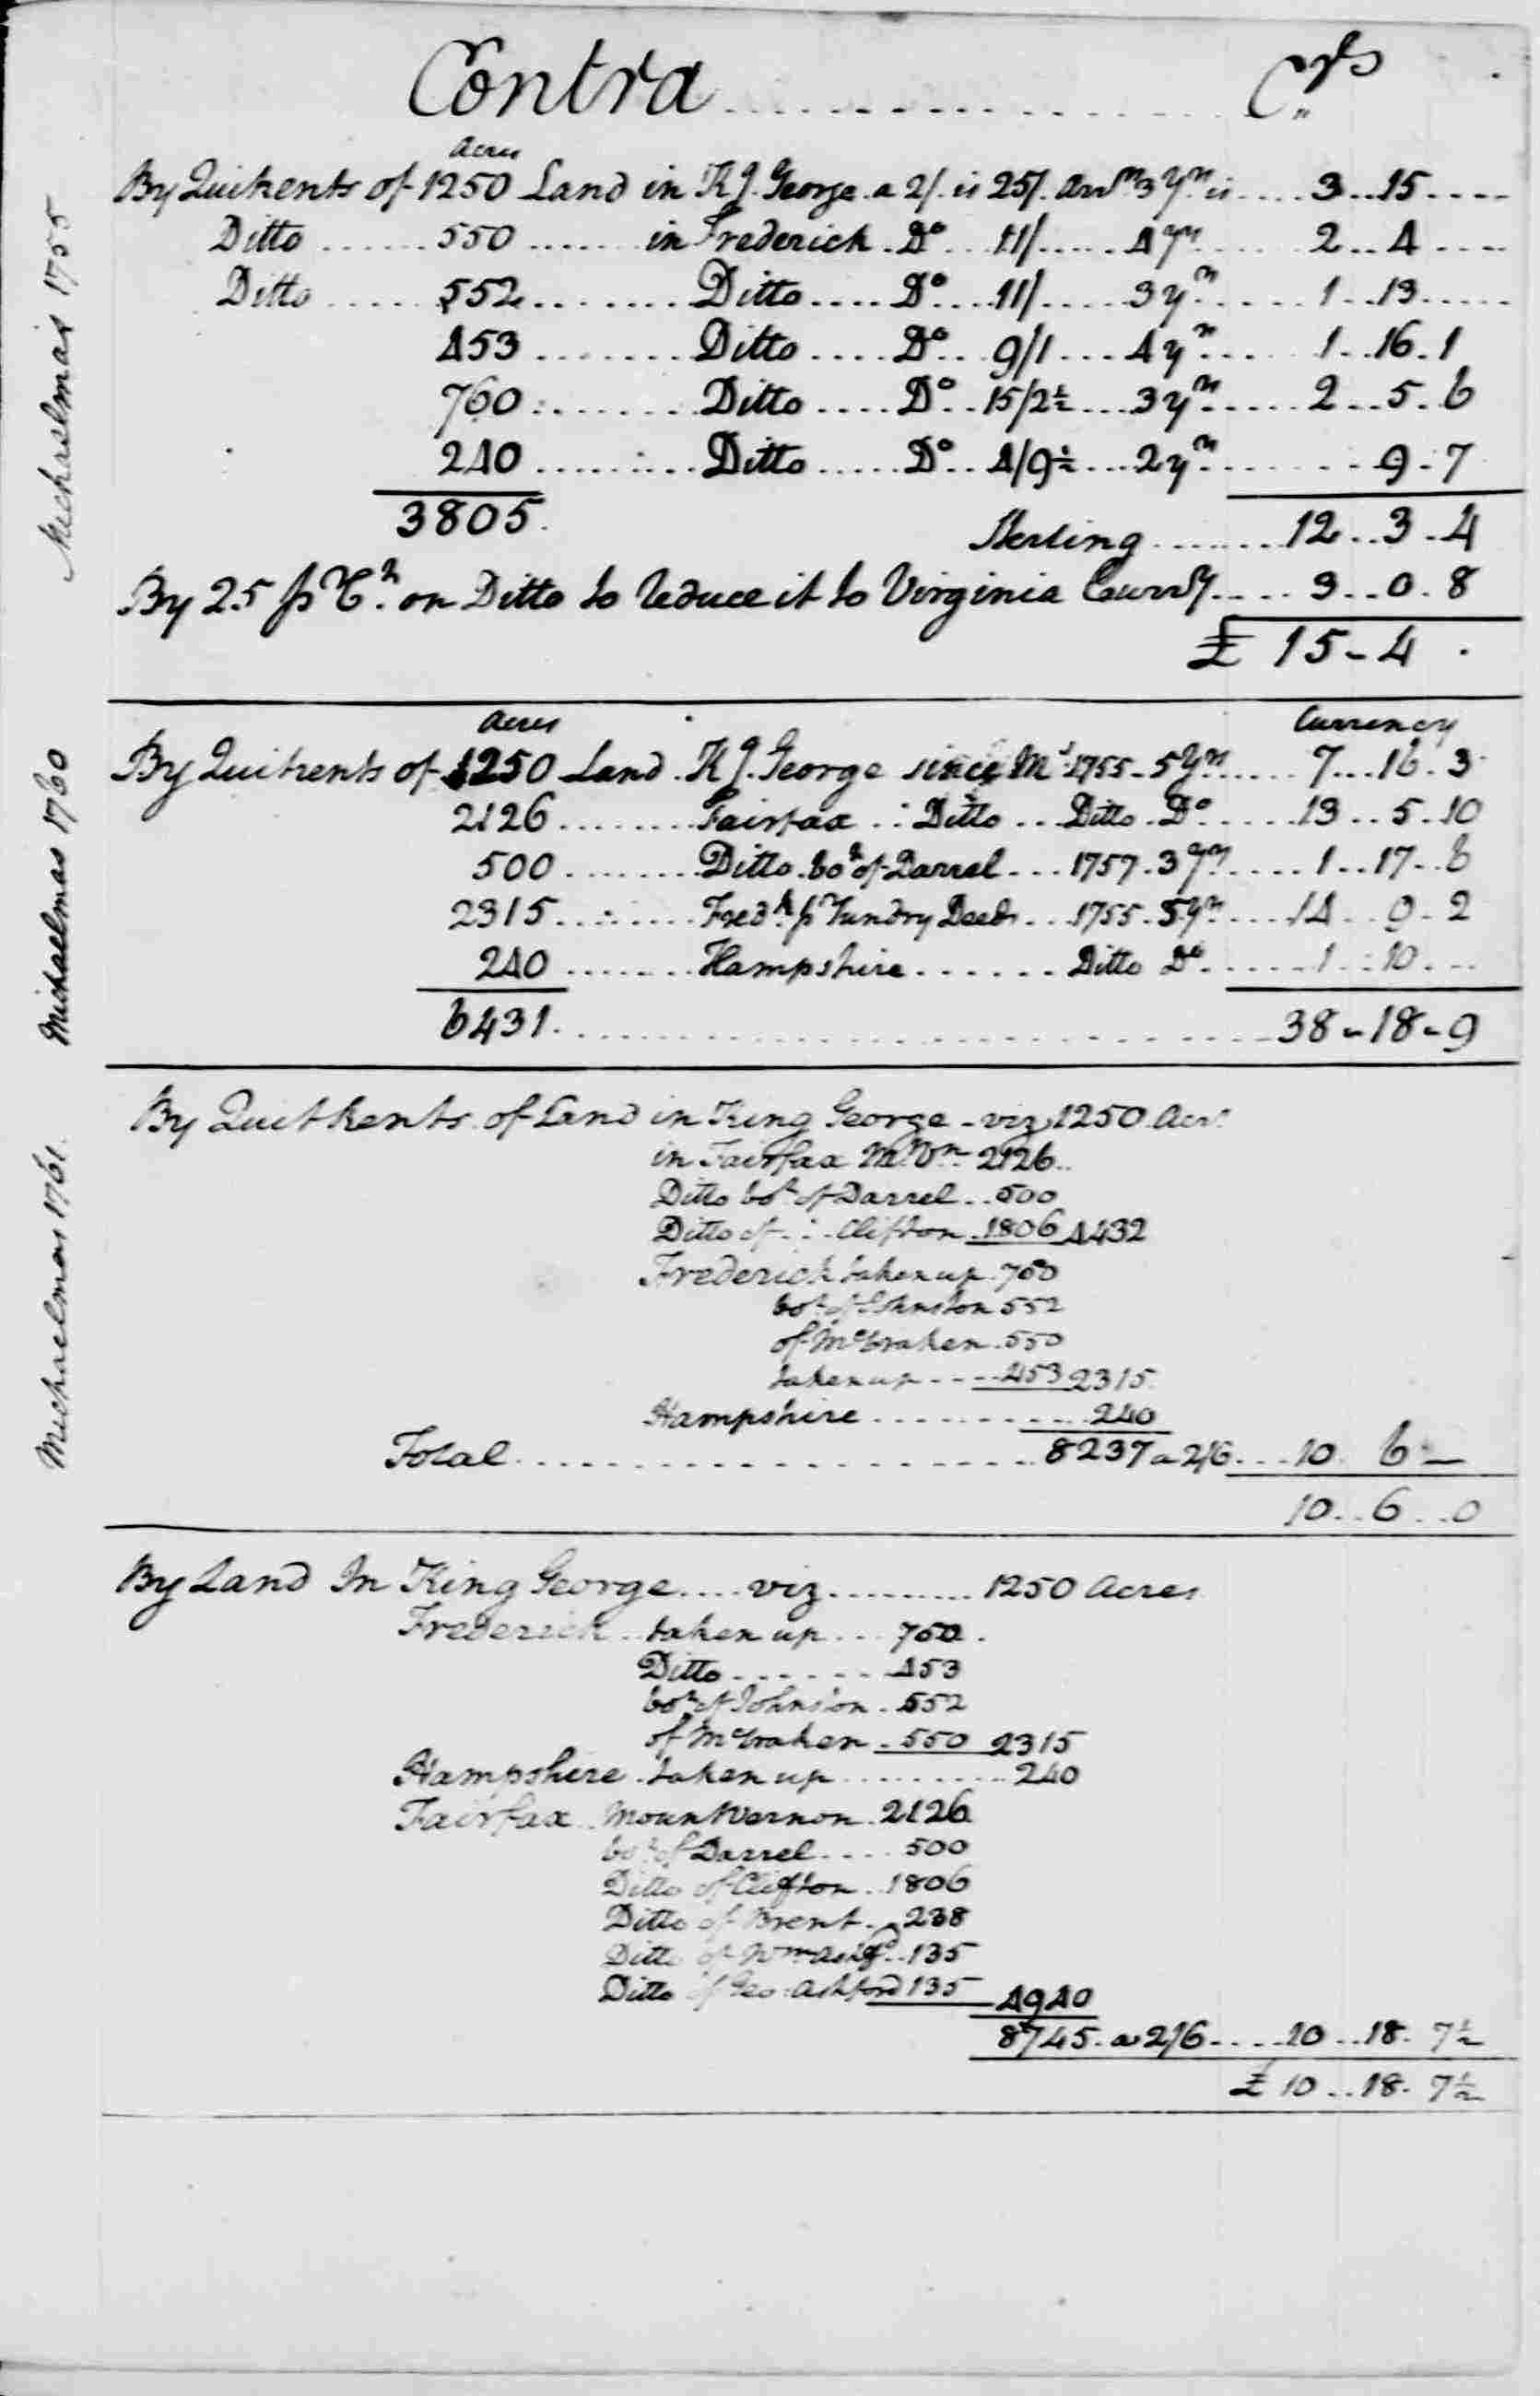 Contra . . . . . . . . . . . . . . . Crs
Acres
By Quitrents of 1250 Land in Kg. George a 2/. is 25/. 3 Yrs is .... 3..15....
Ditto ...... 550 ....... in Frederick . Do ... 11/ ...... 4 yrs ..... 2..4....
Ditto ..... 552 ........ Ditto .... Do ... 11/ ..... 3 yrs ..... 1..13.....
453 ....... Ditto .... Do .. 9/1 ... 4 yrs ..... 1..16.1
760 ........ Ditto .... Do .. 15/2½ ... 3 yrs ..... 2..5.6
240 ........ Ditto ..... Do .. 4/9½ ... 2 yrs ....... 9.7
3805.
Sterling ........ 12..3.4
By 25 pr Ct. on Ditto to reduce it to Virginia Curry .... 3..0.8
£ 15-4 .
Michaelmas 1755
Acres Currency
By Quitrents of 1250 Land . Kg. George since Ms 1755-5 Yrs ..... 7...16.3
2126 ........ Fairfax .. Ditto ... Ditto . Do ..... 13..5.10
500 ........ Ditto . bot of Darrel ... 1757.3 Yrs .... 1..17..6
2315 ........ Fredk pr Sundry Deeds ... 1755.5 Yrs .... 14..9.2
240 ....... Hampshire ....... Ditto Do ...... 1..10....
6431 ........................ 38-18-9
Michaelmas 1760
By Quit Rents of Land in King George - viz 1250 Acrs
in Fairfax Mt Vn 2126 ..
Ditto bot of Darrel .. 500
Ditto of ... Clifton . 1806 4432
Frederick taken up . 760
bot of Johnston 552
of McCraken . 550
taken up .... 453 2315
Hampshire ........... 240
Total ........................ 8237 a 2/6 .... 10 . 6 -
10..6..0
Michaelmas 1761.
By Land In King George .... viz .......... 1250 Acres
Frederick .. taken up ... 760 .
Ditto ....... 453
bot of Johnston . 552
of McCraken . 550 2315
Hampshire . taken up .......... 240
Fairfax . Mount Vernon . 2126
bot of Darrel .... 500
Ditto of Clifton .. 1806
Ditto of Brent .. 238
Ditto of Wm Ashfd .. 135
Ditto of Geo: Ashford 135 4940
8745. a 2/6 .... 10..18. 7½
£ 10..18. 7½